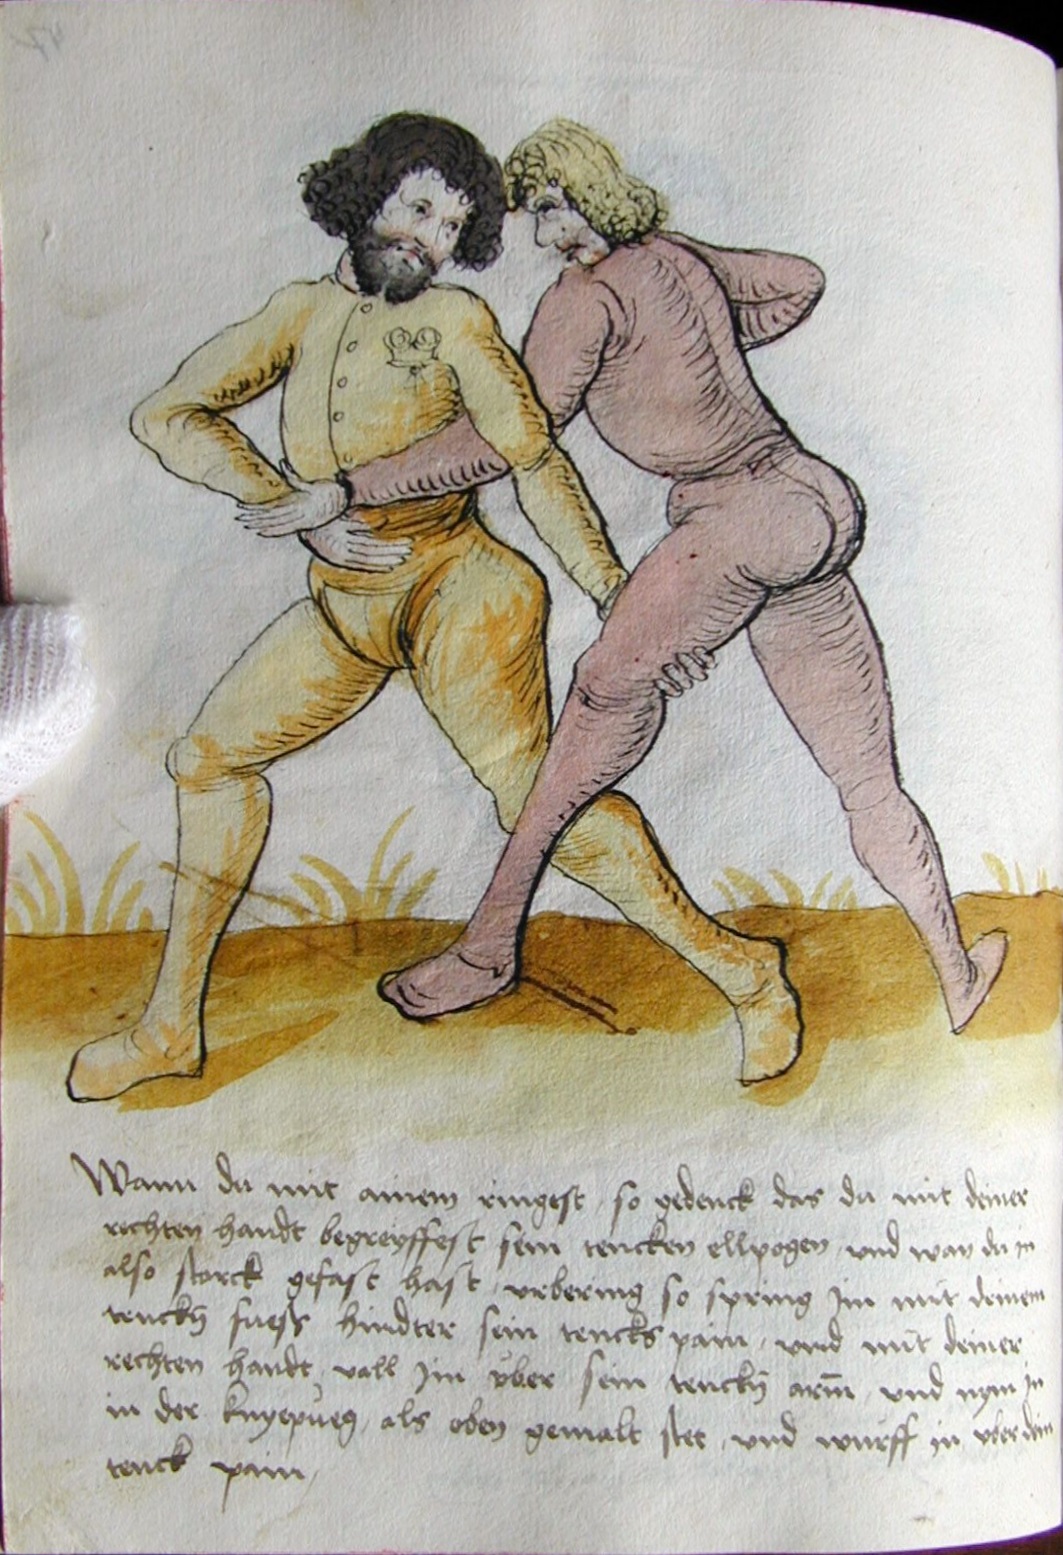 Wann du mit ainem ringest so gedenck das du mit deiner
rechten handt begreyffest sein tencken ellpogen und wan du in
also starck gefast hast urbering so spring im mit deinem
tencken fuess hindter sein tencks pain und mit deiner
rechten handt vall im über sein tencken arm und nym in
in der knyepüeg als oben gemalt stet und würff in uber dein
tenck pain